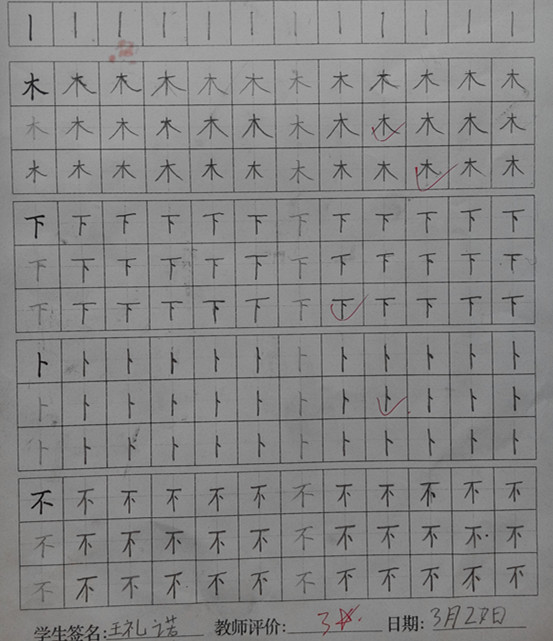 丨 丨 丨 丨 丨 丨 丨 丨 丨 丨 丨 丨
木 木 木 木 木 木 木 木 木 木 木 木
木 木 木 木 木 木 木 木 木 木 木 木
木 木 木 木 木 木 木 木 木 木 木 木
下 下 下 下 下 下 下 下 下 下 下 下
下 下 下 下 下 下 下 下 下 下 下 下
下 下 下 下 下 下 下 下 下 下 下 下
卜 卜 卜 卜 卜 卜 卜 卜 卜 卜 卜 卜
卜 卜 卜 卜 卜 卜 卜 卜 卜 卜 卜 卜
卜 卜 卜 卜 卜 卜 卜 卜 卜 卜 卜 卜
不 不 不 不 不 不 不 不 不 不 不 不
不 不 不 不 不 不 不 不 不 不 不 不
不 不 不 不 不 不 不 不 不 不 不 不
学生签名:王礼诺 教师评价:3☆ 日期:3月24日